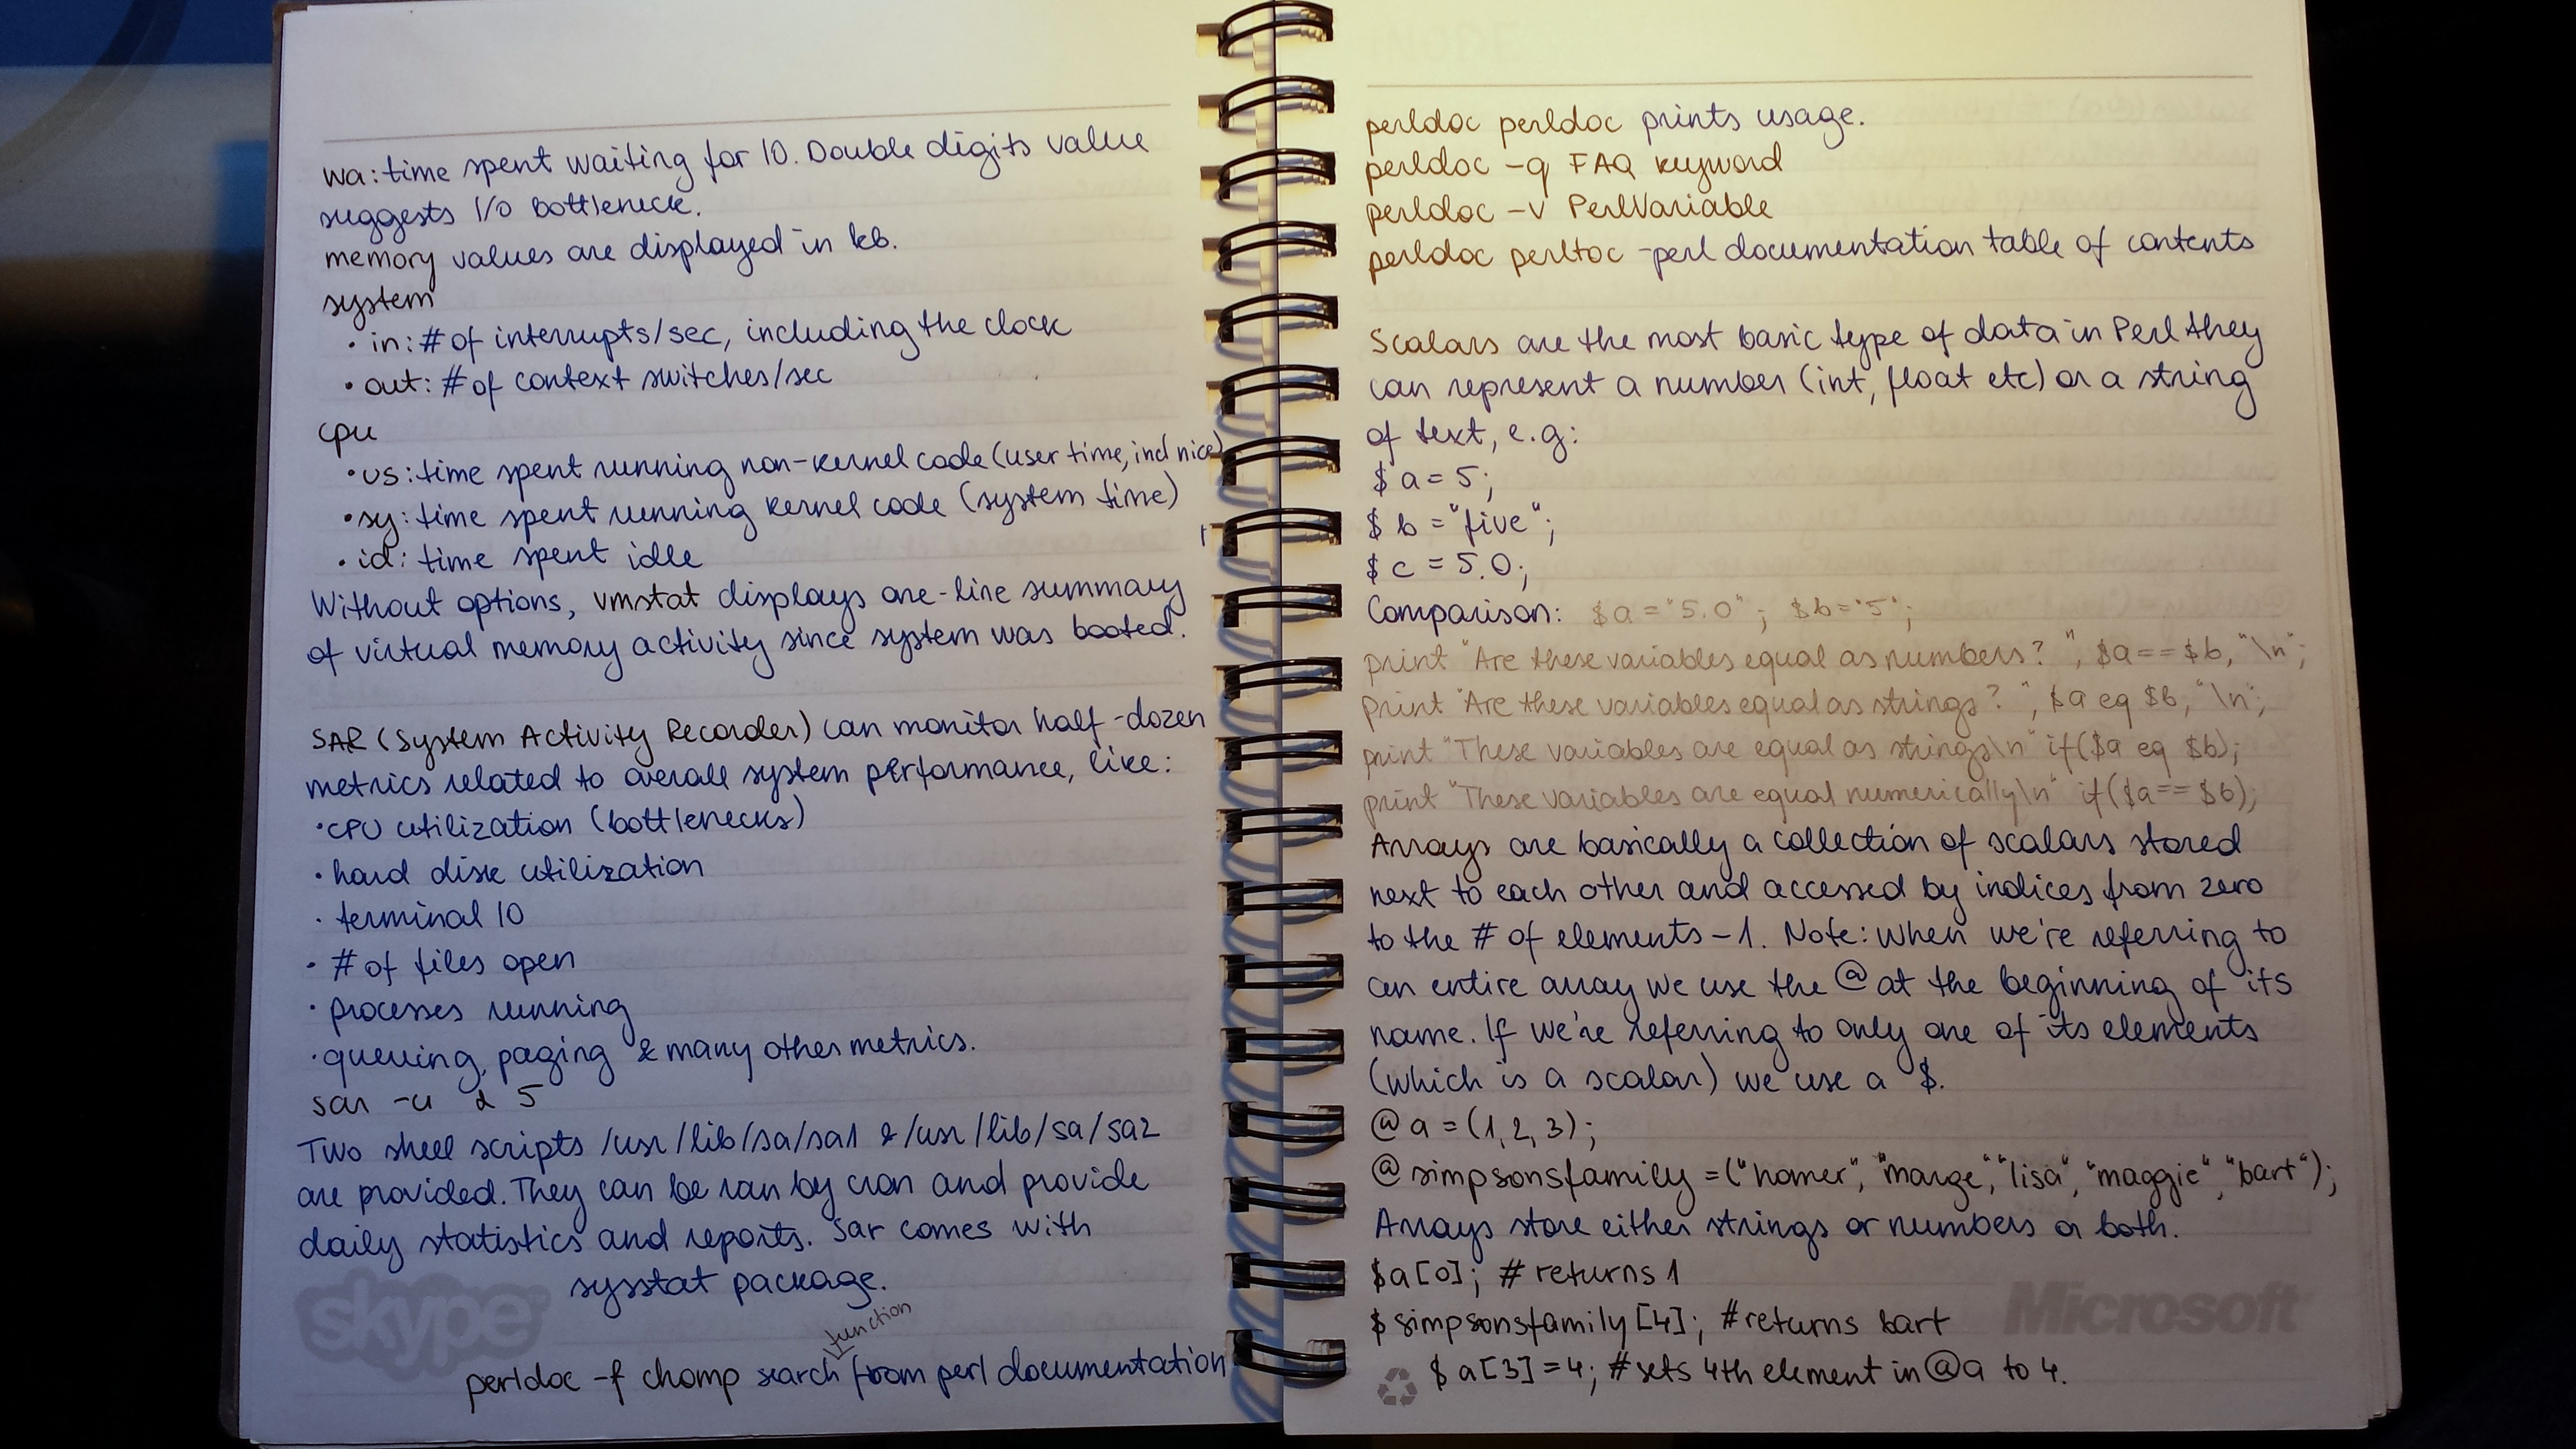 wa: time spent waiting for IO. Double digits value
suggests I/O bottleneck.
memory values are displayed in kb.
system
• in: # of interrupts/sec, including the clock
• out: # of context switches/sec
cpu
• us: time spent running non-kernel code (user time, incl nice)
• sy: time spent running kernel code (system time)
• id: time spent idle
Without options, vmstat displays one-line summary
of virtual memory activity since system was booted.
SAR (System Activity Recorder) can monitor half-dozen
metrics related to overall system performance, like:
• CPU utilization (bottlenecks)
• hard disk utilization
• terminal IO
• # of files open
• processes running
• queuing, paging & many other metrics.
sar -u 2 5
Two shell scripts /usr/lib/sa/sa1 & /usr/lib/sa/sa2
are provided. They can be ran by cron and provide
daily statistics and reports. Sar comes with
sysstat package.
skype
function
perldoc -f chomp search from perl documentation
perldoc perldoc prints usage.
perldoc -q FAQ keyword
perldoc -v PerlVariable
perldoc perltoc - perl documentation table of contents
Scalars are the most basic type of data in Perl they
can represent a number (int, float etc) or a string
of text, e.g:
$a = 5;
$b = "five";
$c = 5.0;
Comparison: $a = "5.0"; $b = "5";
print "Are these variables equal as numbers? ", $a == $b, "\n";
print "Are these variables equal as strings? ", $a eq $b, "\n";
print "These variables are equal as strings\n" if($a eq $b);
print "These variables are equal numerically\n" if($a == $b);
Arrays are basically a collection of scalars stored
next to each other and accessed by indices from zero
to the # of elements - 1. Note: when we're referring to
an entire array we use the @ at the beginning of its
name. If we're referring to only one of its elements
(which is a scalar) we use a $.
@a = (1, 2, 3);
@simpsonsfamily = ("homer", "marge", "lisa", "maggie", "bart");
Arrays store either strings or numbers or both.
$a[0]; # returns 1
$simpsonsfamily[4]; # returns bart
Microsoft
$a[3] = 4; # sets 4th element in @a to 4.